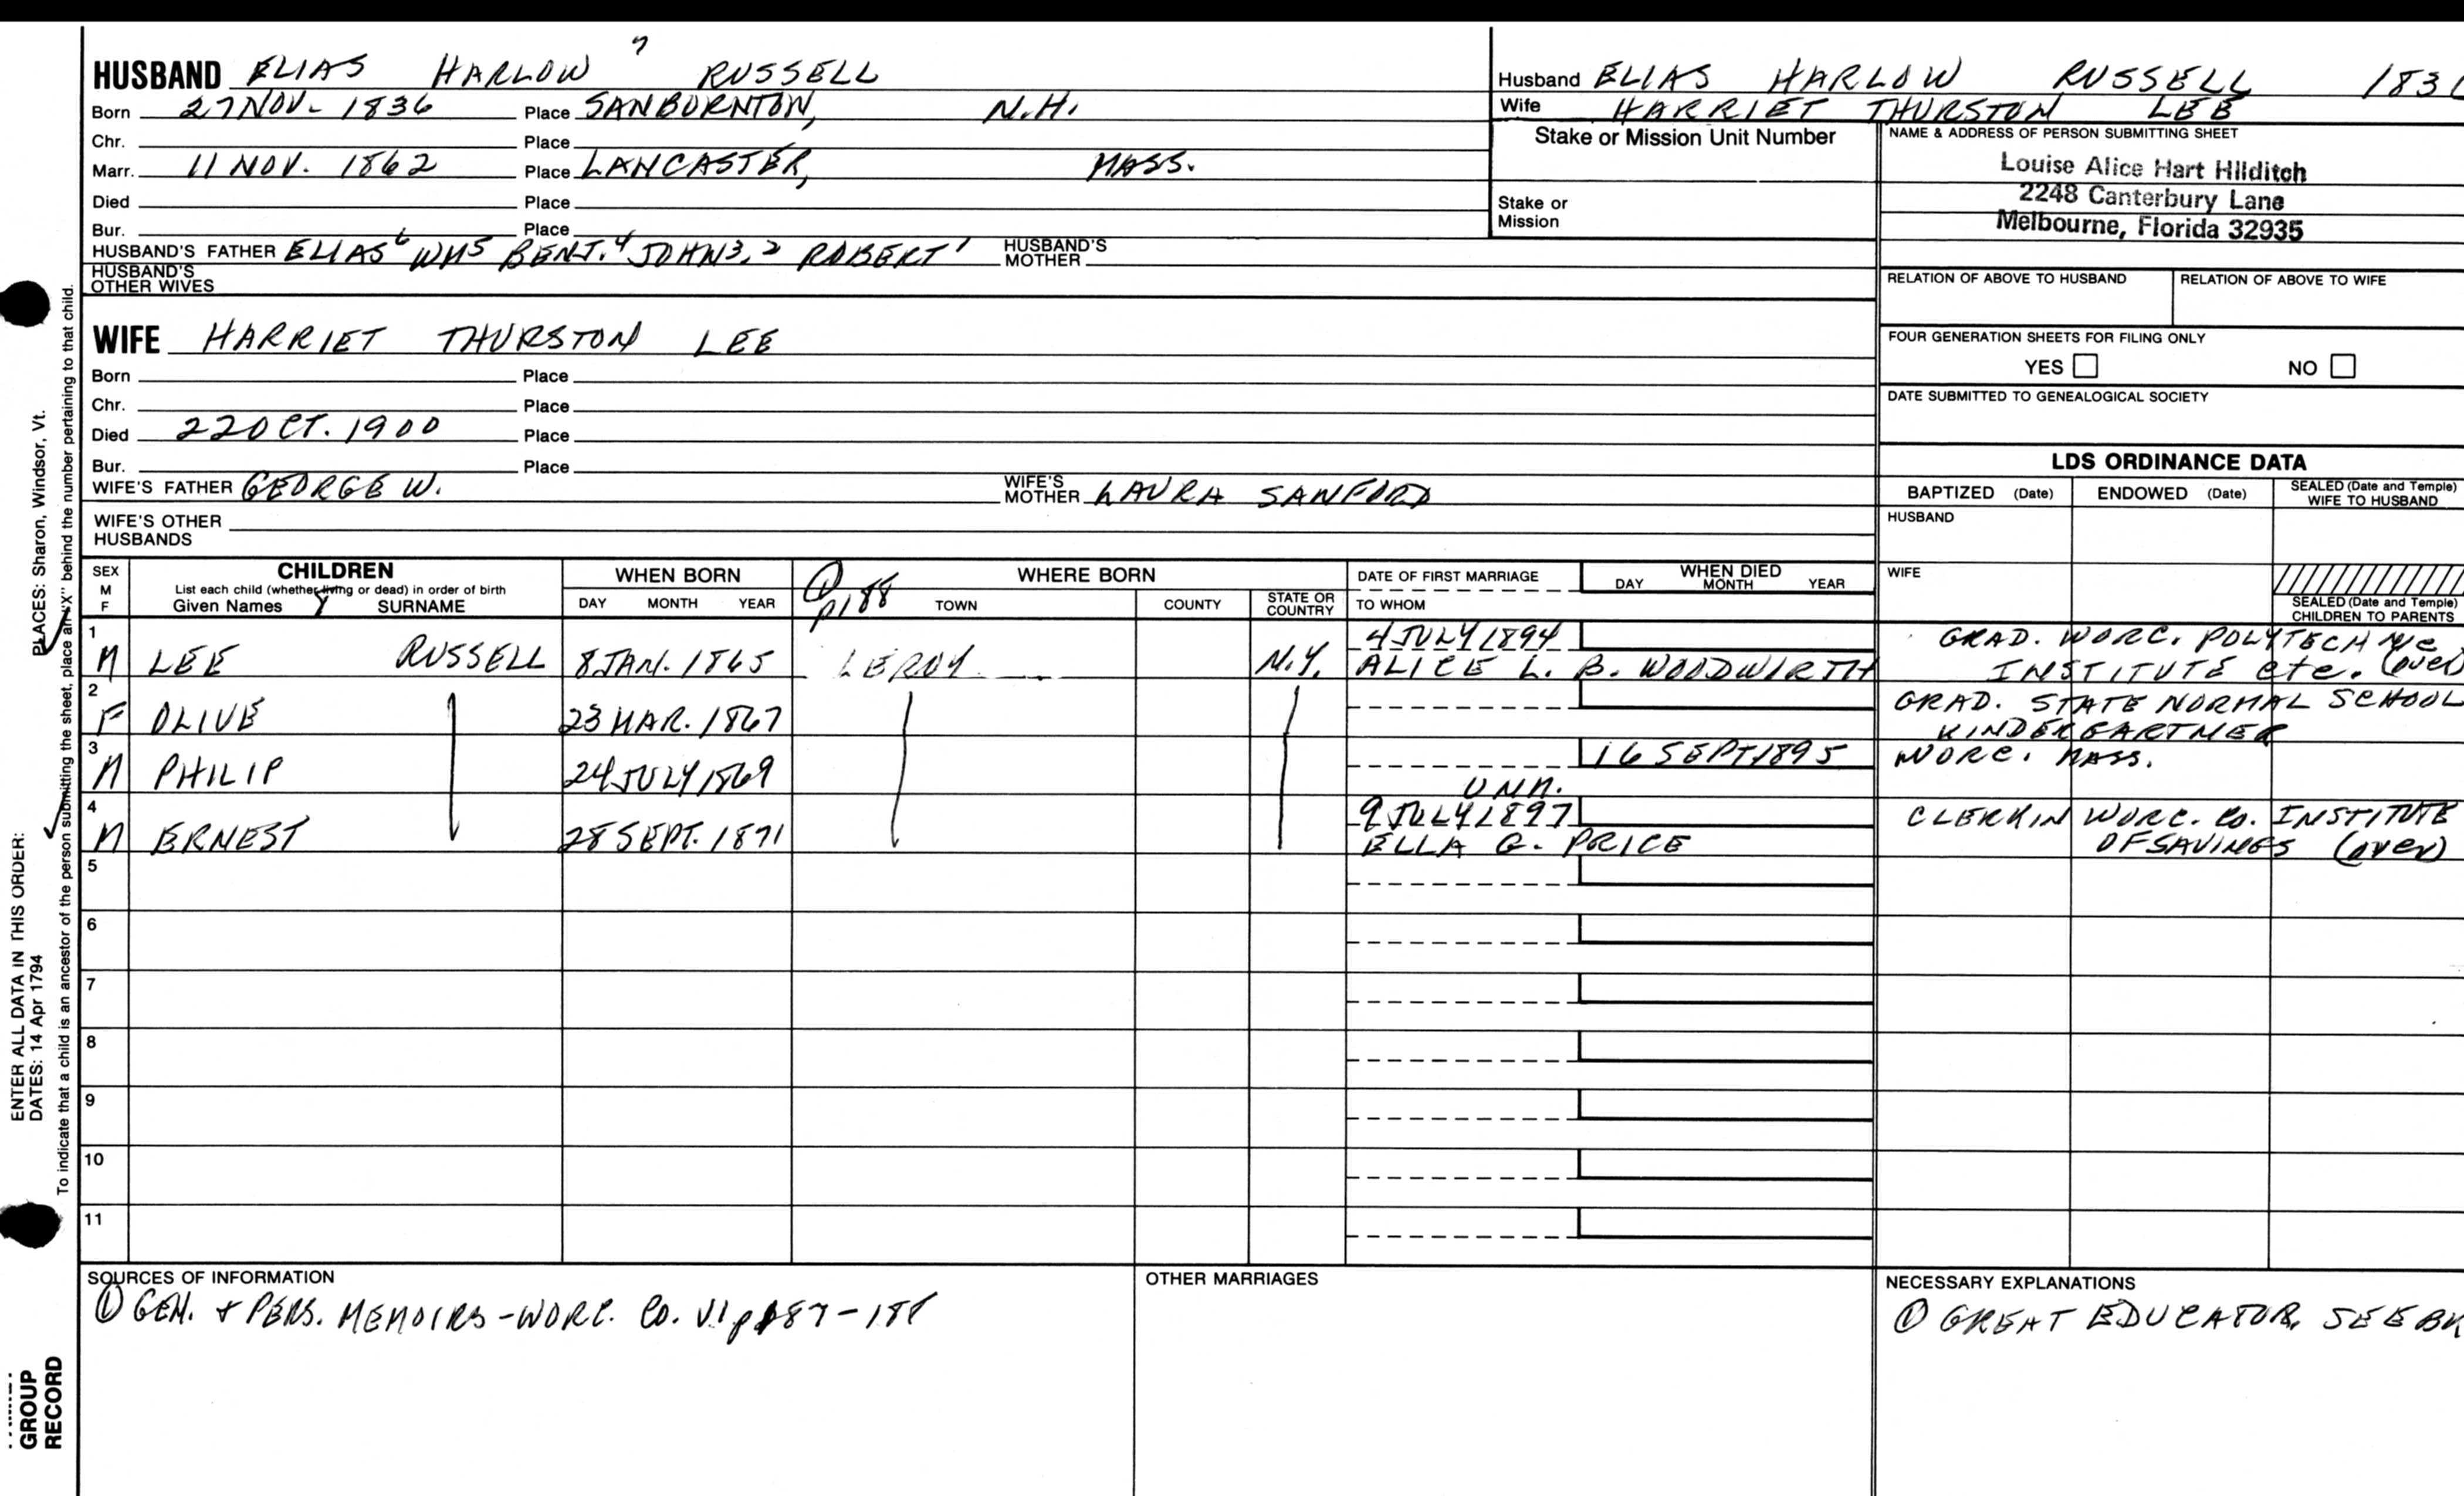 7
HUSBAND ELIAS HARLOW RUSSELL
Born 27 NOV. 1836 Place SANBORNTON, N.H.
Chr. Place
Marr. 11 NOV. 1862 Place LANCASTER, MASS.
Died Place
Bur. Place
HUSBAND'S FATHER ELIAS 6 WM 5 BENJ. 4 JOHN 3, 2 ROBERT 1 HUSBAND'S MOTHER
HUSBAND'S OTHER WIVES
WIFE HARRIET THURSTON LEE
Born Place
Chr. Place
Died 22 OCT. 1900 Place
Bur. Place
WIFE'S FATHER GEORGE W. WIFE'S MOTHER LAURA SANFORD
WIFE'S OTHER HUSBANDS
Husband ELIAS HARLOW RUSSELL 183
Wife HARRIET THURSTON LEE
Stake or Mission Unit Number
Stake or Mission
NAME & ADDRESS OF PERSON SUBMITTING SHEET
Louise Alice Hart Hilditch
2248 Canterbury Lane
Melbourne, Florida 32935
RELATION OF ABOVE TO HUSBAND RELATION OF ABOVE TO WIFE
FOUR GENERATION SHEETS FOR FILING ONLY
YES NO
DATE SUBMITTED TO GENEALOGICAL SOCIETY
LDS ORDINANCE DATA
BAPTIZED (Date) ENDOWED (Date) SEALED (Date and Temple) WIFE TO HUSBAND
HUSBAND
WIFE
SEALED (Date and Temple) CHILDREN TO PARENTS
SEX M F
CHILDREN
List each child (whether living or dead) in order of birth
Given Names SURNAME
WHEN BORN
DAY MONTH YEAR
1 p188
WHERE BORN
TOWN COUNTY STATE OR COUNTRY
DATE OF FIRST MARRIAGE
TO WHOM
WHEN DIED
DAY MONTH YEAR
1 4 JULY 1894 GRAD. WORC. POLYTECHNIC
M LEE RUSSELL 8 JAN. 1865 LEROY N.Y. ALICE L. B. WOODWIRTH INSTITUTE etc. (over)
2 GRAD. STATE NORMAL SCHOOL
F OLIVE 23 MAR. 1867 KINDERGARTNER
3 16 SEPT 1895 WORC. MASS.
M PHILIP 24 JULY 1869 UNM.
4 9 JULY 1897 CLERK IN WORC. CO. INSTITUTE
M ERNEST 28 SEPT. 1871 ELLA G. PRICE OF SAVINGS (over)
5
6
7
8
9
10
11
SOURCES OF INFORMATION
① GEN. & PERS. MEMOIRS - WORC. CO. V.1 p 187-188
OTHER MARRIAGES
NECESSARY EXPLANATIONS
① GREAT EDUCATOR, SEE BK
PLACES: Sharon, Windsor, Vt.
To indicate that a child is an ancestor of the person submitting the sheet, place an "X" behind the number pertaining to that child.
ENTER ALL DATA IN THIS ORDER:
DATES: 14 Apr 1794
GROUP
RECORD